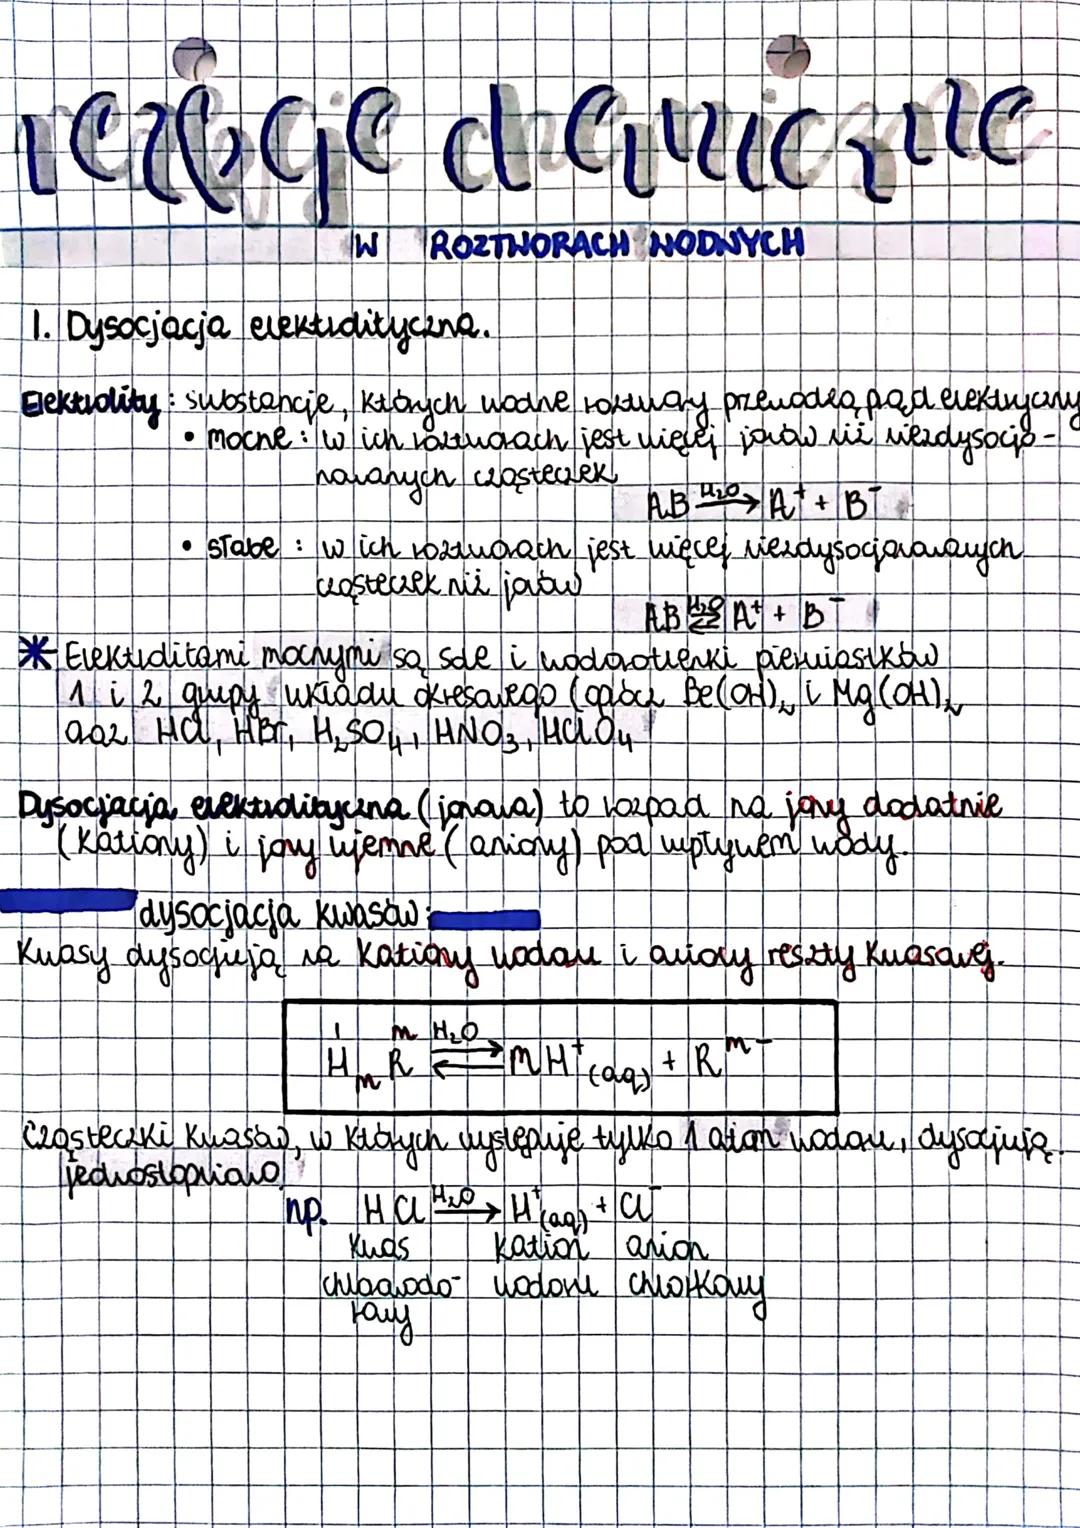 reakcje chemiczne
W ROZTWORACH WODNYCH
1. Dysocjacja elektrolityczna.
Elektrolity : substancje, których wodne roztwory przewodzą prąd elektryczny
• mocne : w ich roztworach jest więcej jonów niż niezdysocjo-
nowanych cząsteczek
AB —H₂O→ A⁺ + B⁻
• słabe : w ich roztworach jest więcej niezdysocjonowanych
cząsteczek niż jonów
AB ⇄H₂O A⁺ + B⁻
* Elektrolitami mocnymi są sole i wodorotlenki pierwiastków
1 i 2 grupy układu okresowego (oprócz Be(OH)₂ i Mg(OH)₂
oraz HCl, HBr, H₂SO₄, HNO₃, HClO₄
Dysocjacja elektrolityczna (jonowa) to rozpad na jony dodatnie
(kationy) i jony ujemne (aniony) pod wpływem wody.
dysocjacja kwasów:
Kwasy dysocjują na kationy wodoru i aniony reszty kwasowej.
I m H₂O
HₘR ⇄ mH⁺(aq) + Rᵐ⁻
Cząsteczki kwasów, w których występuje tylko 1 atom wodoru, dysocjują
jednostopniowo.
np. HCl —H₂O→ H⁺(aq) + Cl⁻
kwas kation anion
chlorowodo- wodoru chlorkowy
rowy